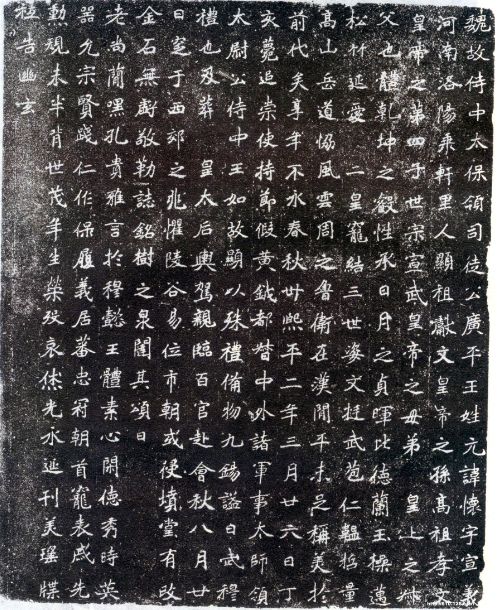 魏故侍中太保領司徒公廣平王姓元諱懷字宣義
河南洛陽乘軒里人顯祖獻文皇帝之孫高祖孝文
皇帝之第四子世宗宣武皇帝之母弟 皇上之叔
父也體乾坤之叡性承日月之貞暉比德蘭玉操邁
松竹延愛 二皇寵結三世姿文挺武苞仁韞哲量
高山岳道協風雲周之魯衛在漢間平未足稱美於
前代矣享年不永春秋卅熙平二年三月廿六日丁
亥薨追崇使持節假黃鉞都督中外諸軍事太師領
太尉公侍中王如故顯以殊禮備物九錫謚曰武穆
禮也及葬 皇太后輿駕親臨百官赴會秋八月廿
日窆于西郊之兆懼陵谷易位市朝或侵墳堂有改
金石無虧敬勒誌銘樹之泉闥其頌曰
老尚簡嘿孔貴雅言於穆懿王體素心閑德秀時英
器允宗賢踐仁作保履義居蕃忠冠朝首寵表戚先
動規未半背世茂年生榮殁哀休光永延刊美瑤牒
祗告幽玄